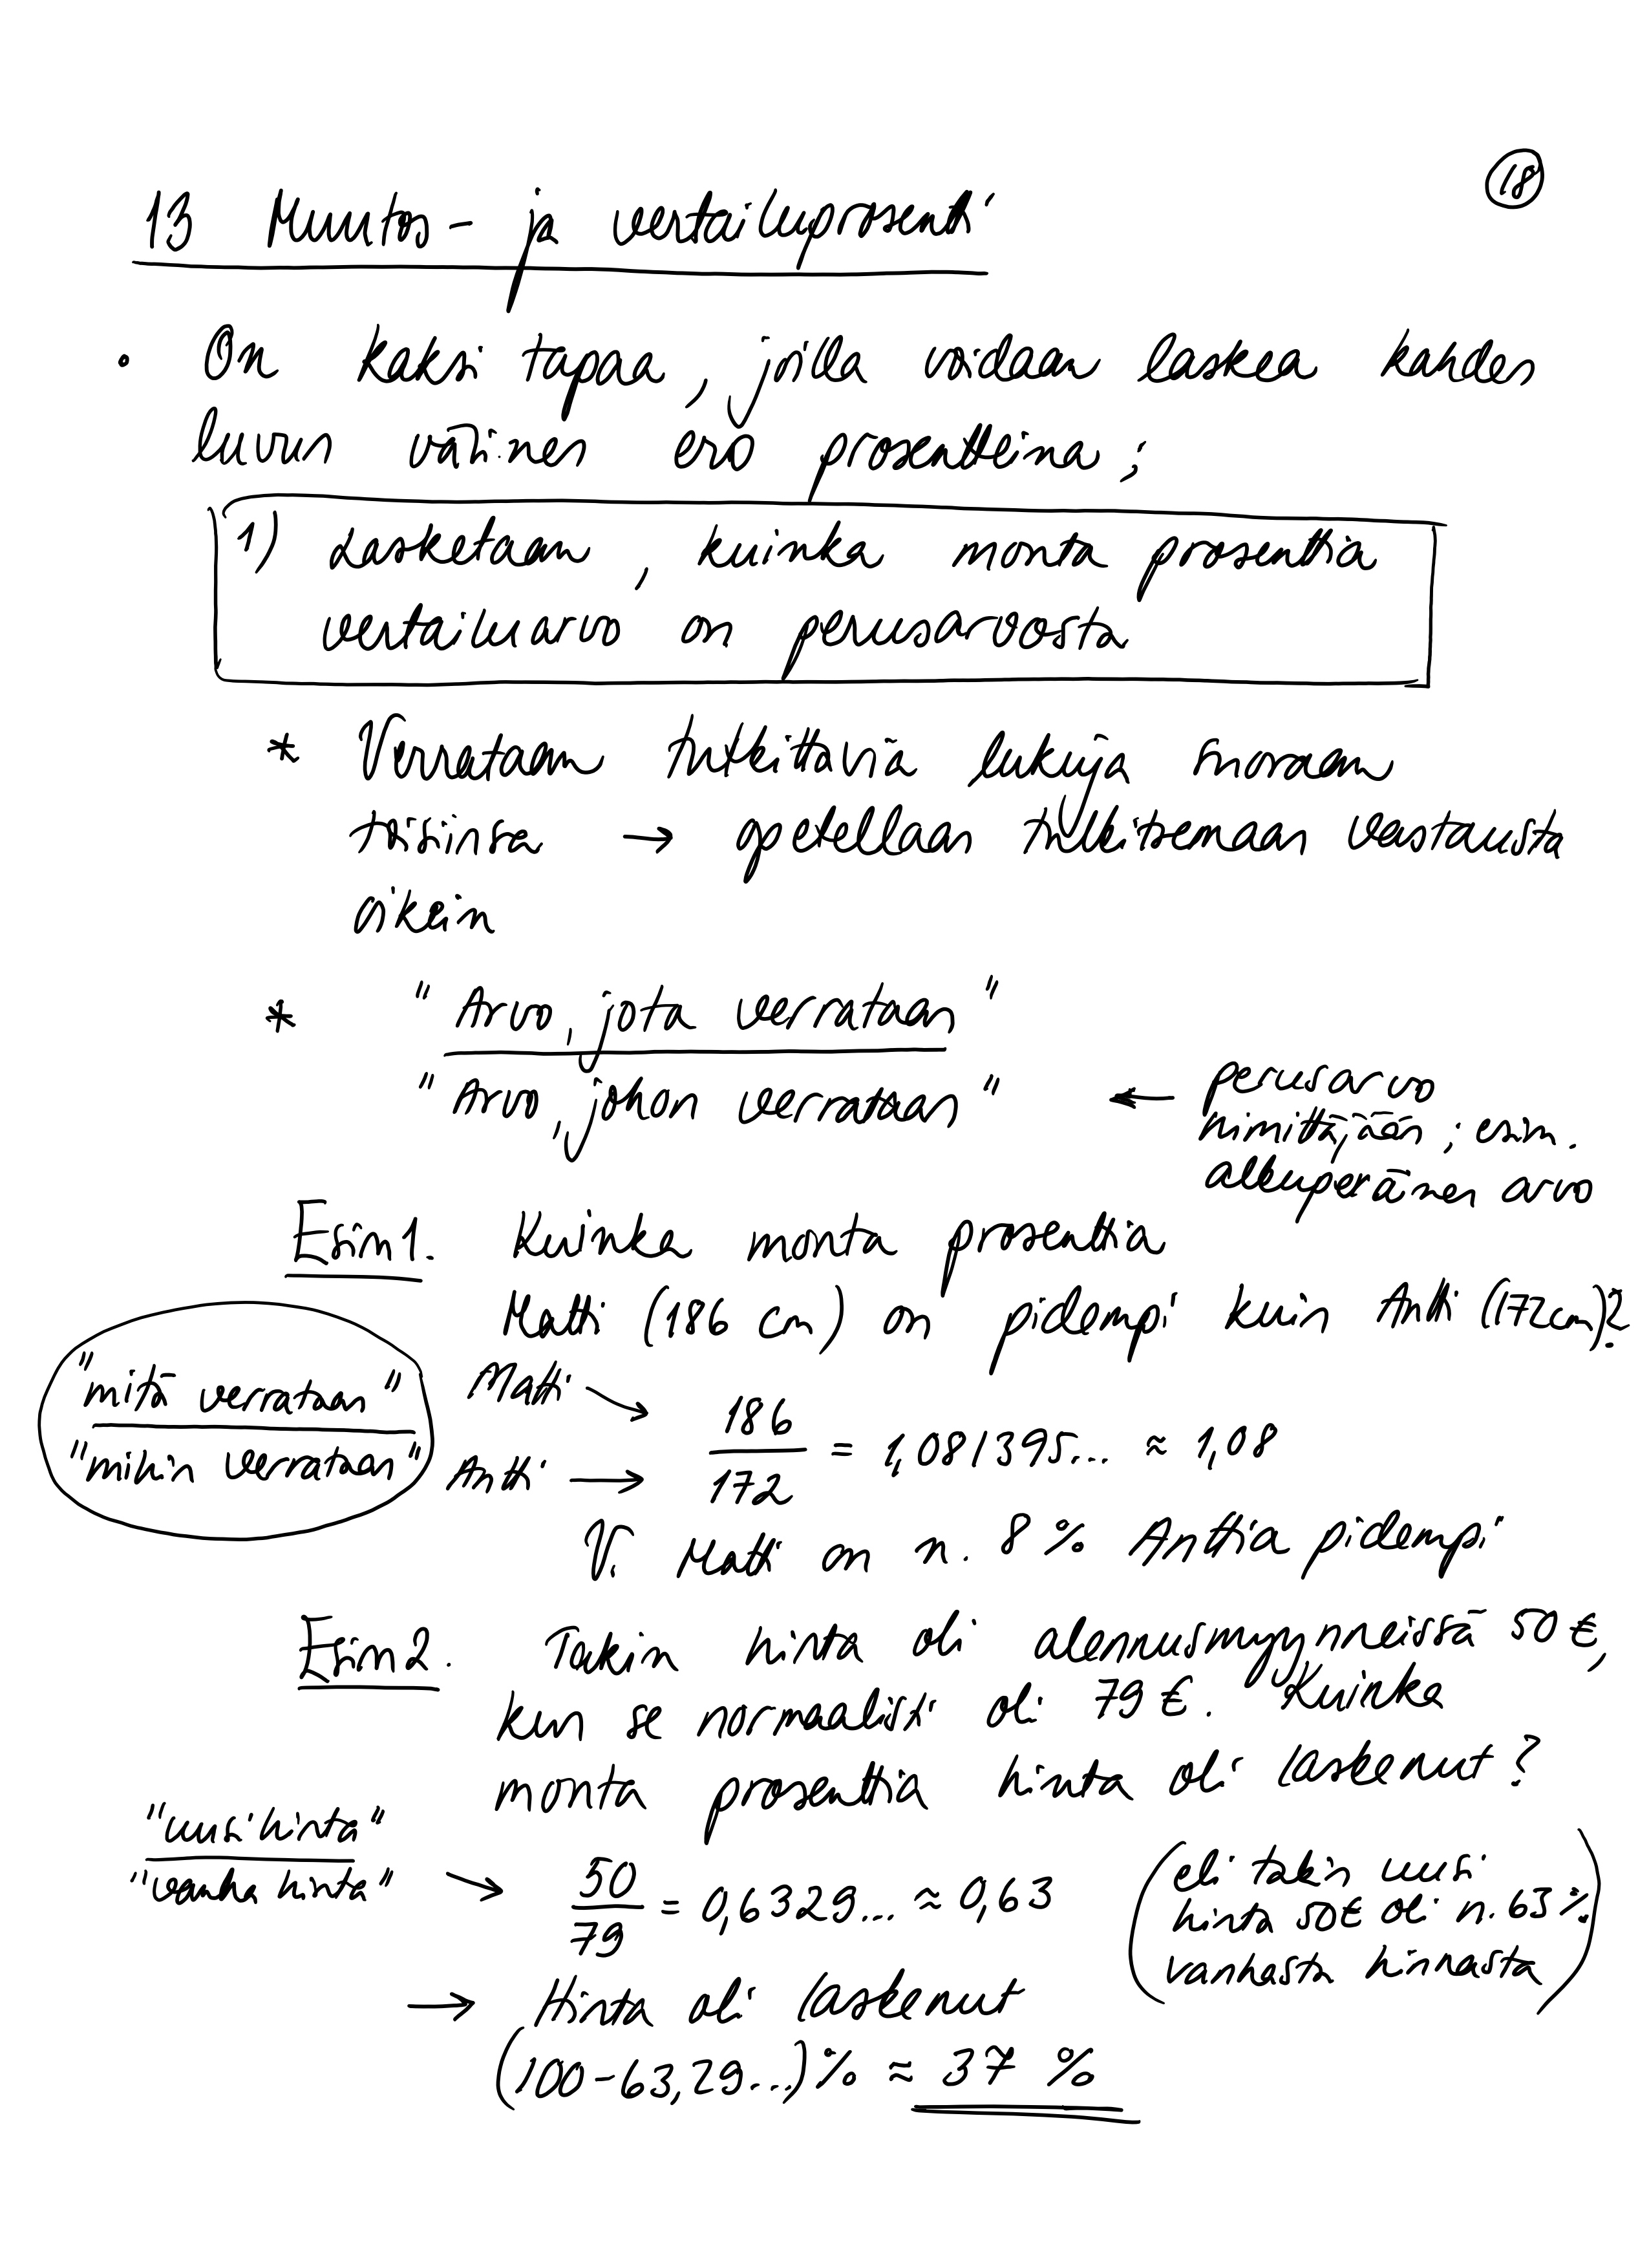 18
13 Muutos- ja vertailuprosentti
• On kaksi tapaa, joilla voidaan laskea kahden
luvun välinen ero prosentteina:
1) Lasketaan, kuinka monta prosenttia
vertailuarvo on perusarvosta
* Verrataan tutkittavia lukuja suoraan
toisiinsa → opetellaan tulkitsemaan vastausta
oikein
* "Arvo, jota verrataan"
"Arvo, johon verrataan" ← perusarvo
nimittäjään; esim.
alkuperäinen arvo
Esim 1. Kuinka monta prosenttia
Matti (186 cm) on pidempi kuin Antti (172cm)?
"mitä verrataan"
"mihin verrataan"
Matti → 186
Antti → 172
= 1,081395... ≈ 1,08
V. Matti on n. 8 % Anttia pidempi
Esim 2. Takin hinta oli alennusmyynneissä 50 €,
kun se normaalisti oli 79 €. Kuinka
monta prosenttia hinta oli laskenut?
"uusi hinta"
"vanha hinta" →
50
79
= 0,6329... ≈ 0,63
(eli takin uusi
hinta 50€ oli n. 63 %
vanhasta hinnasta)
→ Hinta oli laskenut
(100-63,29...)% ≈ 37 %